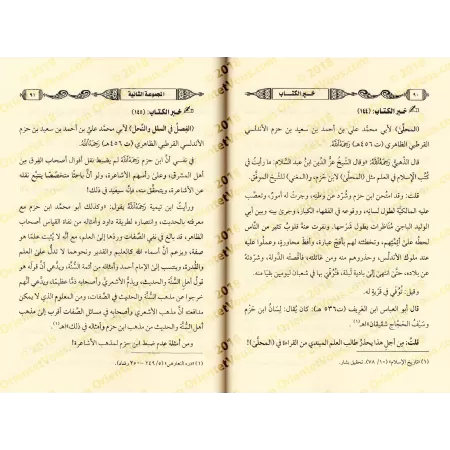 ٩٠
خبر الكتاب
خبر الكتاب: (١٤٤)
(المحلَّى) لأبي محمَّد علي بن أحمد بن سعيد بن حزم الأندلسي
القرطبي الظاهري (ت ٤٥٦هـ) رَحِمَهُ ٱللَّهُ.
قال الذَّهبيُّ رَحِمَهُ ٱللَّهُ: «وقال الشيخ عزُّ الدِّين ابنُ عبد السَّلام: ما رأيتُ في
كُتُب الإسلام في العلم مثل (المحلَّى) لابن حَزم، و(المغني) للشيخ الموفَّق.
قلت: وقد امتُحن ابن حَزم وشُرِّد عن وطنِه، وجرت له أمورٌ، وتعصَّب
عليه المالكيَّة لطول لسانِه، ووقوعه في الفقهاء الكبار، وجرى بينه وبين أبي
الوليد الباجي مُناظرات يطول شرحها. ونفرت عنه قلوبُ كثير من النَّاس
لحطِّه على أئمَّتهم، وتخطئته لهم بأفجِّ عبارة، وأفظِّ محاورة، وعملوا عليه
عند ملوك الأندلس، وحذَّروهم منه ومن غائلته، فأقصتْه الدَّولة، وشرَّدتْه
عن بلاده، حتَّى انتهى إلى بادية لَبلة، فتوفِّي بها في شعبان ليومين بقيا منه.
وقيل: تُوفِّي في قرية له.
قال أبو العباس ابن العَريف (ت٥٣٦هـ): كان يُقال: لِسَانُ ابن حَزم
وسَيفُ الحَجَّاج شَقيقَان»اهـ(١)
قلتُ: من أجل هذا يحذَرُ طالب العلم المبتدي من القراءة في (المحلَّى)!
(١) «تاريخ الإسلام» (١٠/ ٧٨) تحقيق بشار.
المجموعة الثانية
٩١
خبر الكتاب: (١٤٥)
(الفِصَل في الملل والنِّحل) لأبي محمَّد عليّ بن أحمد بن سعيد بن حزم
الأندلسي القرطبي الظاهري (ت ٤٥٦هـ) رَحِمَهُ ٱللَّهُ.
في نفسي أنَّ ابن حزم رَحِمَهُ ٱللَّهُ لم يضبط نقل أقوال أصحاب الفِرق من
أهل المشرق، وعلى رأسهم الأشاعرة، ولو أنَّ باحثًا متخصِّصًا يتتبَّع نقله
عن الأشاعرة، ويتحقَّق منه، فإنَّه سيفيد في ذلك!
ورأيتُ ابن تيمية رَحِمَهُ ٱللَّهُ يقول: «وكذلك أبو محمَّد ابن حزم مع
معرفته بالحديث، وانتصاره لطريقة داود وأمثاله من نفاة القياس أصحاب
الظاهر، قد بالغ في نفي الصِّفات وردِّها إلى العلم، مع أنَّه لا يُثبت علمًا هو
صفة، ويزعم أنَّ أسماء الله كالعليم والقدير ونحوهما لا تدلُّ على العلم
والقُدرة، وينتسب إلى الإمام أحمد وأمثاله من أئمَّة السُّنَّة، ويدَّعي أنَّ قوله هو
قول أهل السُّنَّة والحديث، ويذمُّ الأشعريَّ وأصحابه ذمًّا عظيمًا، ويدَّعي أنَّهم
خرجوا عن مذهب السُّنَّة والحديث في الصِّفات، ومن المعلوم الذي لا يمكن
مدافعته أنَّ مذهب الأشعري وأصحابه في مسائل الصِّفات أقرب إلى مذهب
أهل السُّنَّة والحديث من مذهب ابن حزم وأمثاله في ذلك»اهـ(١).
ومن أمثلة عدم ضبط ابن حزم لمذهب الأشاعرة:
(١) «درء التعارض» (٥/ ٢٤٩ - ٢٥٠ رشاد).